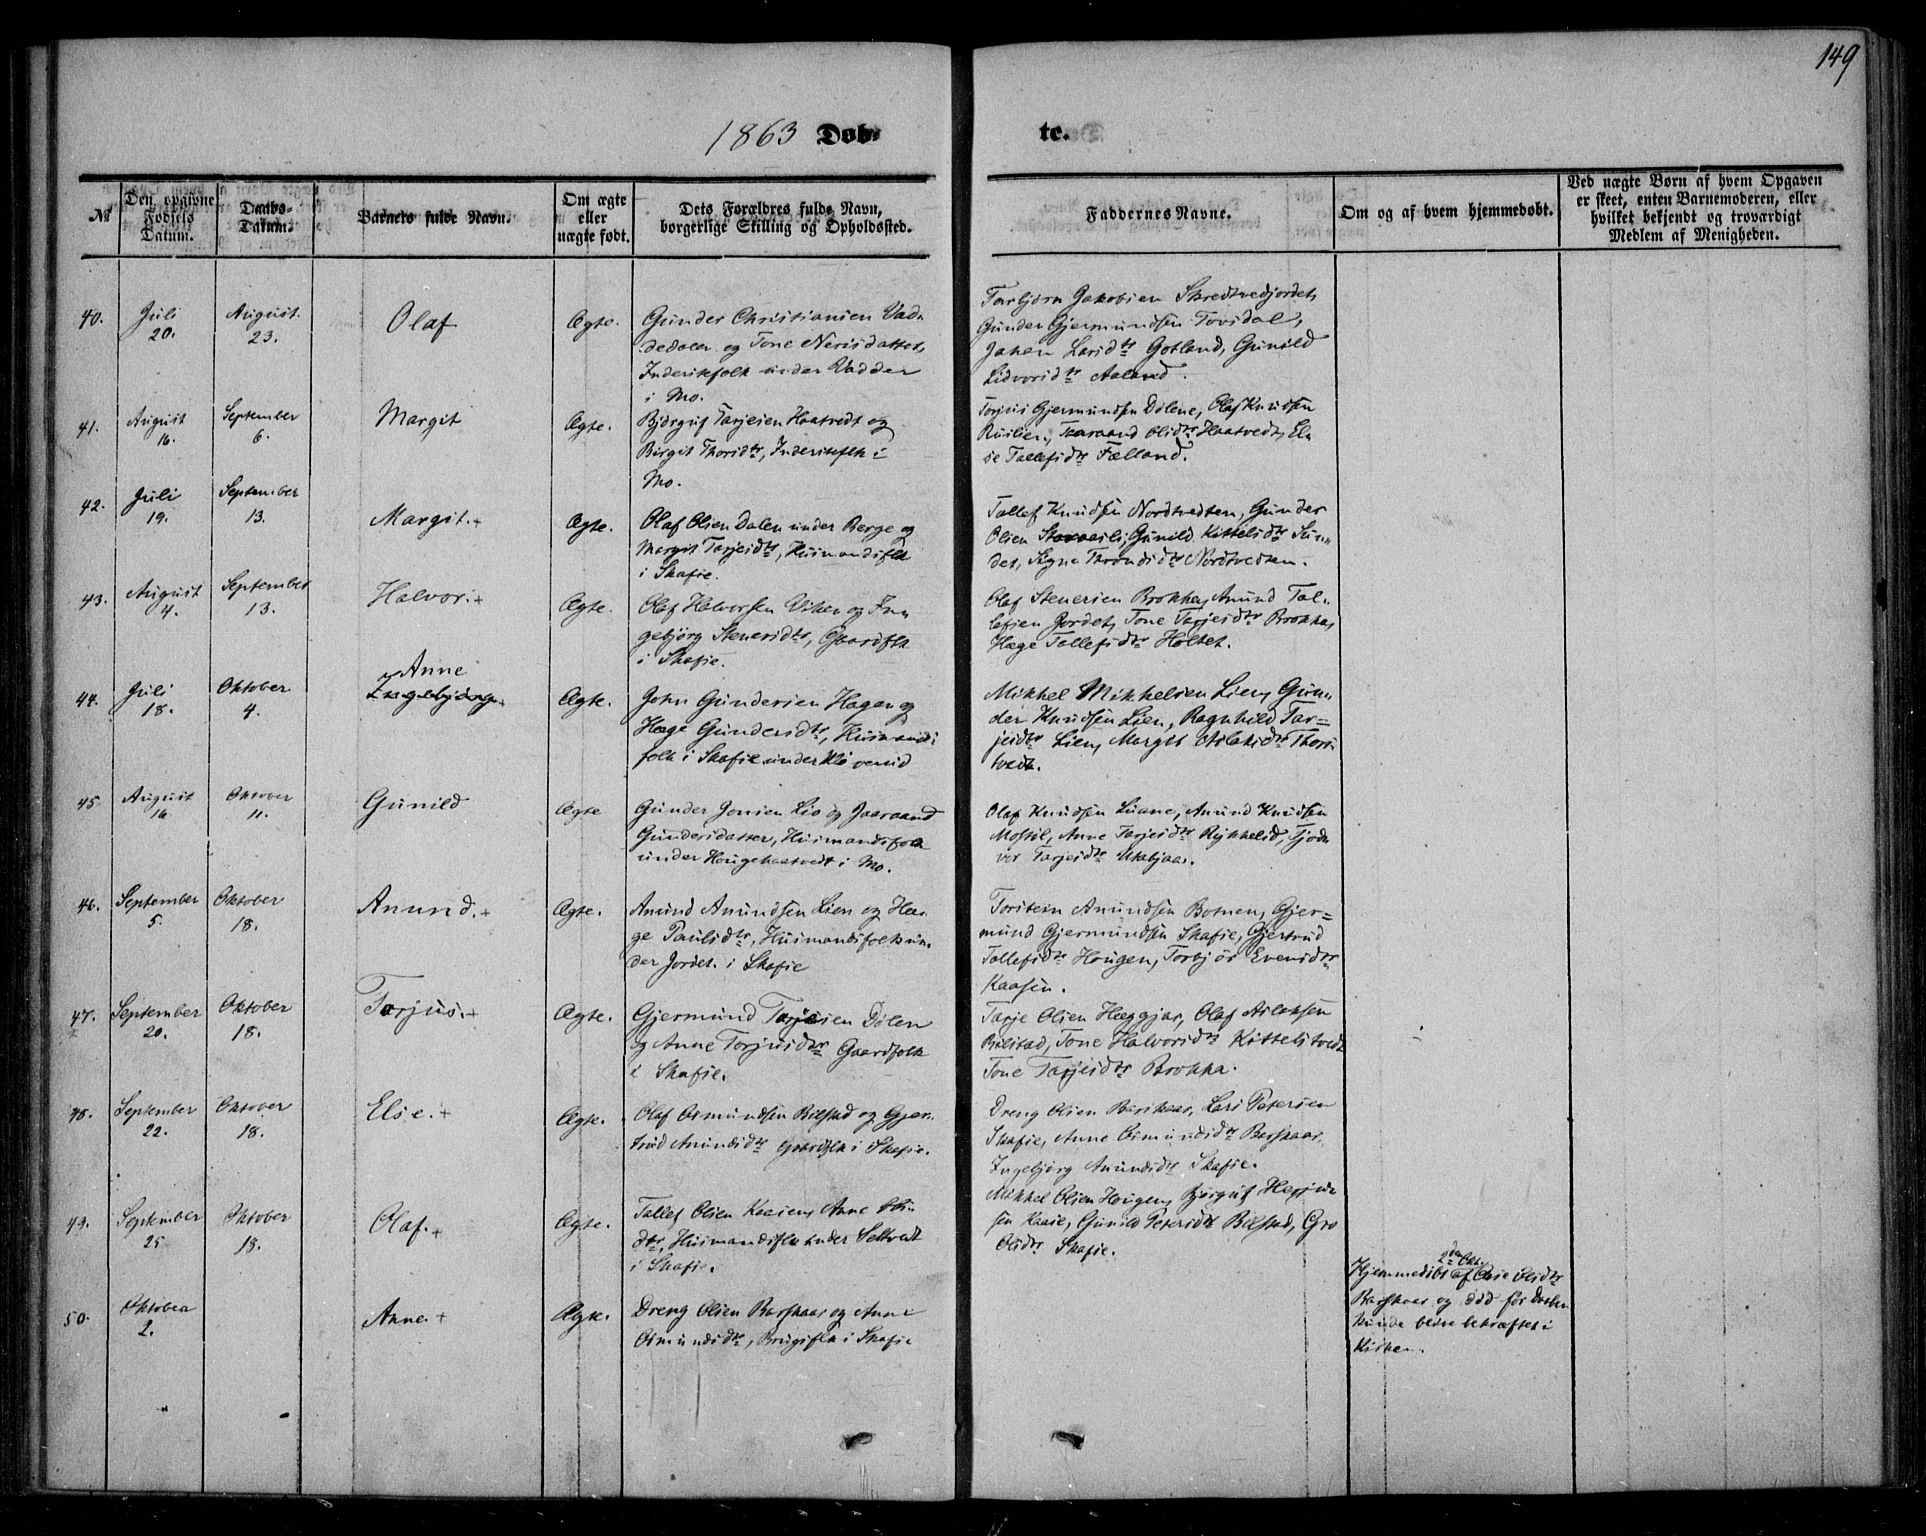 149
1863 Døb-
te.
№
Den opgivne Fødsels Datum.
Daabs-Datum.
Barnets fulde Navn.
Om ægte eller uægte født.
Dets Forældres fulde Navn, borgerlige Stilling og Opholdssted.
Faddernes Navne.
Om og af hvem hjemmedøbt.
Ved uægte Børn af hvem Opgaven er skeet, enten Barnemoderen, eller hvilket bekjendt og troværdigt Medlem af Menigheden.
40. Juli 20. August 23. Olaf Ægte.
Gunder Christiansen Vad-
dedalen og Tone Nerisdatter,
Inderstfolk under Vadder
i Mo.
Torbjørn Jakobsen Skredtvedjordet,
Gunder Gjermundsen Tovsdal,
Johen Larsdtr Gotland, Gunild
Lidvorsdtr Aaland.
41. August 16. September 6. Margit Ægte.
Bjørguf Tarjeisen Haatvedt og
Birgit Thorsdtr, Inderstflk i
Mo.
Torjus Gjermundsen Dølene, Olaf Knudsen
Ruilien, Taraand Olsdtr Haatvedt, El-
se Tollefsdtr Fælland.
42. Juli 19. September 13. Margit.+ Ægte.
Olaf Olsen Dalen under Berge og
Margit Tarjeisdtr, Husmandsflk
i Skafse.
Tollef Knudsen Nordtvedten, Gunder
Olsen Gunild Kittelsdtr Sun-
det, Signe Throndsdtr Nordtvedten.
43. August 4. September 13. Halvor.+ Ægte.
Olaf Halvorsen Viker og In-
gebjørg Stenersdtr, Gaardflk
i Skafse.
Olaf Stenersen Brokka, Anund Tol-
lefsen Jordet, Tone Tarjeisdtr Brokka,
Hæge Tollefsdtr Holtet.
44. Juli 18. Oktober 4. Anne Ingebjørg+ Ægte.
John Gundersen Hagen og
Hæge Gundersdtr, Husmands-
folk i Skafse under Kløverud
Mikkel Mikkelsen Lien, Gun-
der Knudsen Lien, Ragnhild Tar-
jeisdtr Lien, Margit Aslaksdtr Thors-
tvedt.
45. August 16. Oktober 11. Gunild Ægte
Gunder Jonsen Lio og Jaaraand
Gundersdatter, Husmandsfolk
under Hougehaatvedt i Mo.
Olaf Knudsen Luane, Anund Knudsen
Mostøl, Anne Tarjeisdtr Rykkelid, Tjod-
vor Tarjeisdtr
46. September 5. Oktober 18. Anund.+ Ægte.
Anund Anundsen Lien og Hæ-
ge Paulsdtr, Husmandsfolk un-
der Jordet. i Skafse
Torstein Anundsen Botnen, Gjer=
mund Gjermundsen Skafse, Gjertrud
Tollefsdtr Hougen, Torbjør Evensdtr
Kaasen.
47. September 20. Oktober 18. Torjus.+ Ægte.
Gjermund Tarjeisen Dølen
og Anne Torjusdtr Gaardfolk
i Skafse.
Tarje Olsen Hæggjar, Olaf Aslaksen
Bilstad, Tone Halvorsdtr Kittelstvedt
Tone Tarjeisdtr Brokka.
48. September 22. Oktober 18. Else.+ Ægte.
Olaf Osmundsen Bilstad og Gjer-
trud Anundsdtr Gaardflk i Skafse.
Dreng Olsen Barskaar, Lars Petersen
Skafse, Anne Osmundsdtr Barskaar.
Ingebjørg Anundsdtr Skafse.
49. September 25. Oktober 18. Olaf.+ Ægte.
Tollef Olsen Kaasen, Anne Ols-
dtr, Husmandsflk under Seltvedt
i Skafse.
Mikkel Olsen Hougen, Bjørguf
sen Kaase, Gunild Petersdtr Bilstad, Gro
Olsdtr Skafse.
50. Oktober 2. Anne.+ Ægte.
Dreng Olsen Barskaar og Anne
Osmundsdtr, Brugsflk i Skafse
2den Okt.
Hjemmedøbt af Olsdtr
Barskaar og død før Daaben
kunde blive bekræftet i
Kirken.